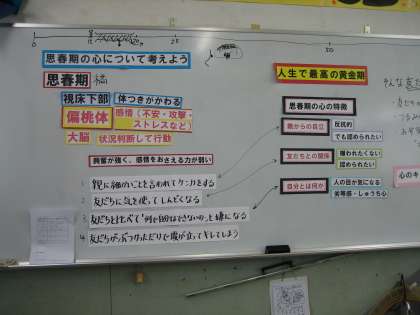 思春期の心について考えよう
思春期 編
視床下部 体つきがかわる
偏桃体 感情(不安・攻撃・ストレスなど)
大脳 状況判断して行動
興奮が強く、感情をおさえる力が弱い
1 親に細かいことを言われてケンカをする
2 友だちに気を使ってしんどくなる
3 友だちと比べて「何で自分はできないの」と嫌になる
4 友だちがぶつかっただけで腹が立ってキレてしまう
人生で最高の黄金期
思春期の心の特徴
親からの自立 反抗的
でも認められたい
友だちとの関係 嫌われたくない
認められたい
自分とは何か 人の目が気になる
劣等感・しゅうち心
そんな
心のキ